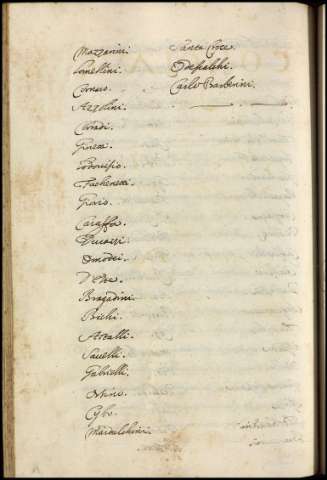 Mazzarini
Lomellini.
Cornaro.
Azzolini.
Corradi.
Ginetti.
Lodovisio.
Fachenetti.
Giorio.
Caraffa.
Omodei.
D'Este.
Bragadini.
Bichi.
Astalli.
Sauelli.
Gabrielli.
Orsino.
Cybo.
Maidalchini.
Santa Croce.
Odescalchi.
Carlo Barberini.